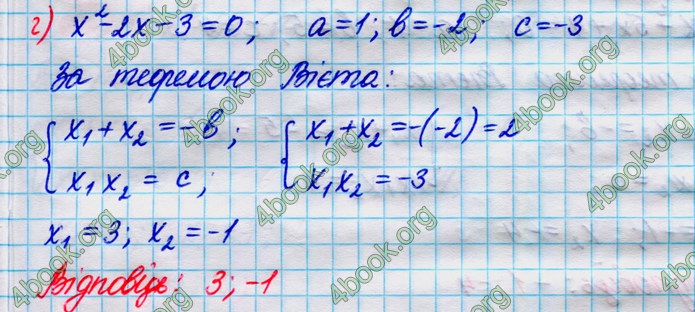 г) x²-2x-3=0; a=1; b=-2; c=-3
За теоремою Вієта:
{ x₁+x₂=-b; { x₁+x₂=-(-2)=2
{ x₁x₂=c; { x₁x₂=-3
x₁=3; x₂=-1
Відповідь: 3; -1
4book.org
4book.org
4book.org
4book.org
4book.org
4book.org
4book.org
4book.org